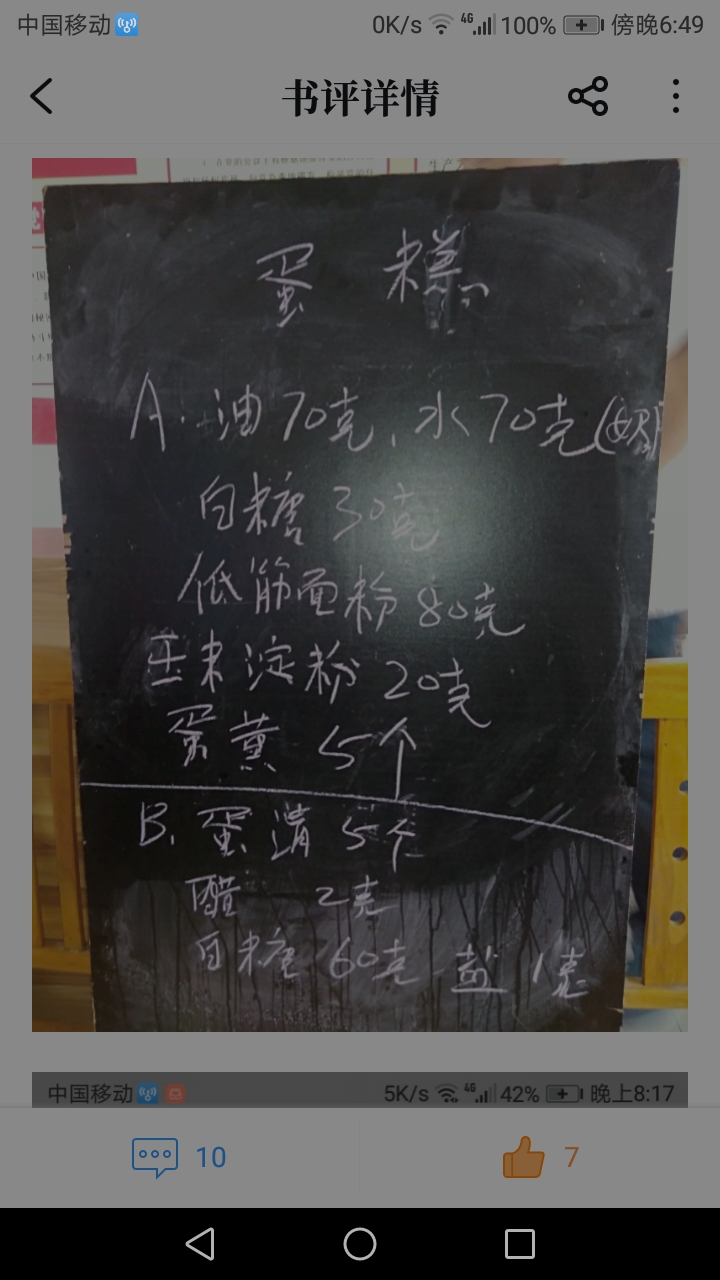 中国移动
0K/s 4G 100% 傍晚6:49
书评详情
蛋 糕
A. 油70克, 水70克(奶)
白糖 30克
低筋面粉 80克
玉米淀粉 20克
蛋黄 5个
B. 蛋清 5个
醋 2克
白糖 60克 盐 1克
中国移动
5K/s 4G 42% 晚上8:17
10
7